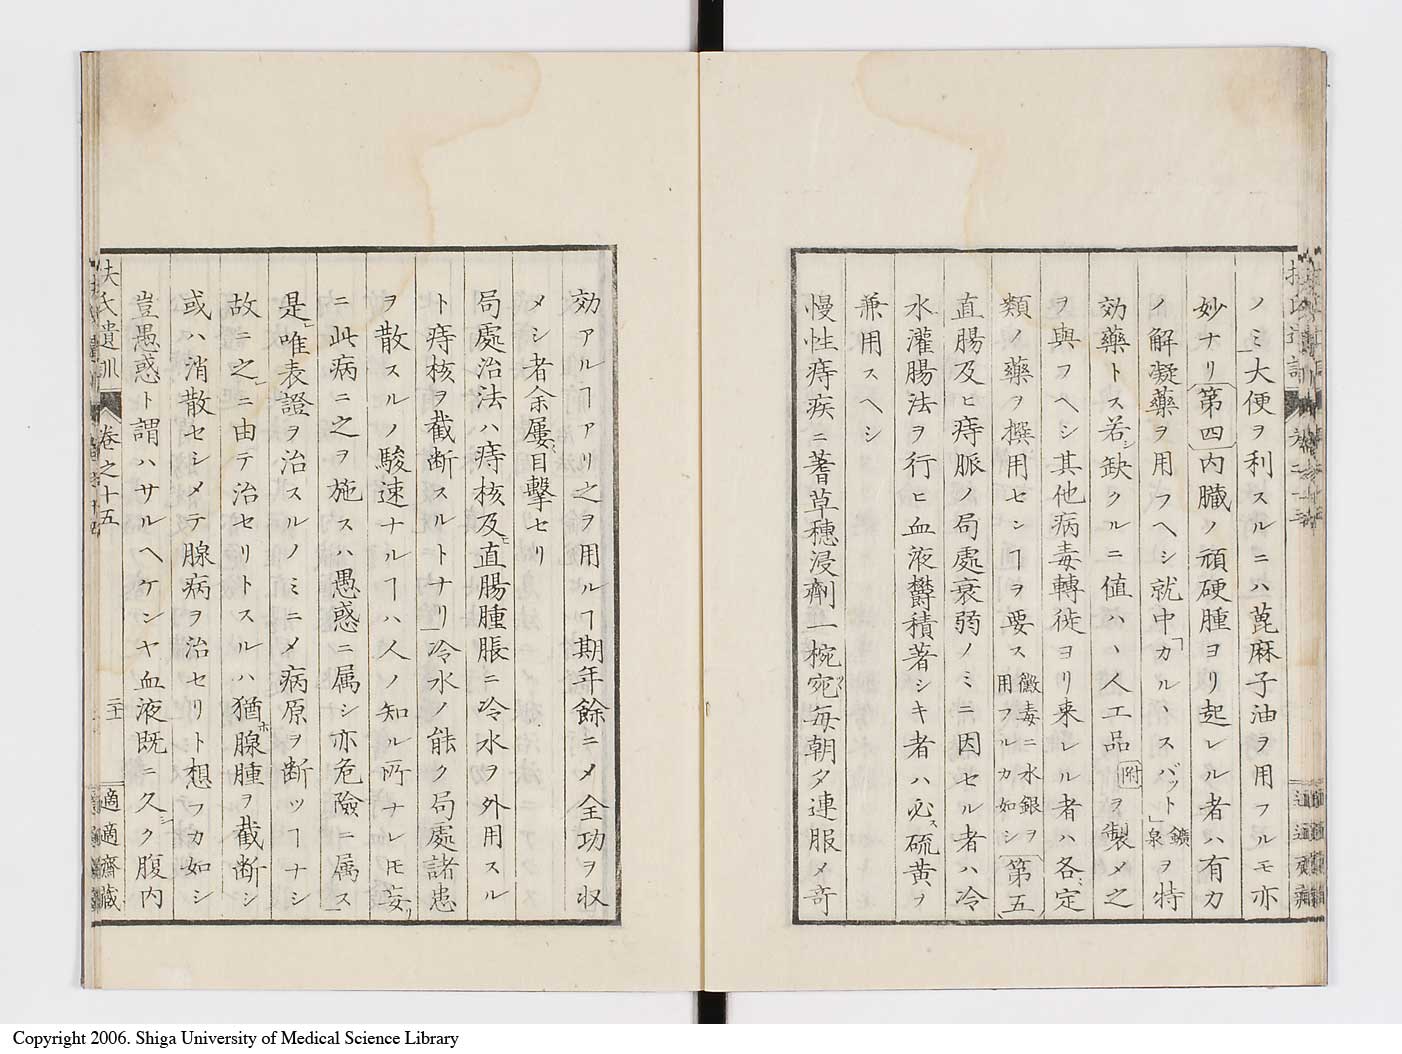 ノミ大便ヲ利スルニハ蓖麻子油ヲ用フルモ亦
妙ナリ(第四)内臓ノ頑硬腫ヨリ起レル者ハ有力
ノ解凝藥ヲ用フヘシ就中「カルヽスバット」鑛泉ヲ特
効藥トス若シ缺クルニ値ハヽ人工品附ヲ製メ之
ヲ與フヘシ其他病毒轉徙ヨリ来レル者ハ各定
類ノ藥ヲ撰用センヿヲ要ス黴毒ニ水銀ヲ用フルカ如シ(第五)
直腸及ヒ痔脈ノ局處衰弱ノミニ因セル者ハ冷
水灌腸法ヲ行ヒ血液欝積著シキ者ハ必ス硫黄ヲ
兼用スヘシ
慢性痔疾ニ蓍草穗浸劑一椀宛毎朝夕連服メ奇
効アルヿアリ之ヲ用ルヿ期年餘ニメ全功ヲ収
メシ者余屢目擊セリ
局處治法ハ痔核及直腸腫脹ニ冷水ヲ外用スル
ト痔核ヲ截断スルトナリ冷水ノ能ク局處諸患
ヲ散スルノ駿速ナルヿハ人ノ知ル所ナレモ妄リ
ニ此病ニ之ヲ施スハ愚惑ニ属シ亦危險ニ属ス
是唯表證ヲ治スルノミニメ病原ヲ断ツヿナシ
故ニ之ニ由テ治セリトスルハ猶腺腫ヲ截断シ
或ハ消散セシメテ腺病ヲ治セリト想フカ如シ
豈愚惑ト謂ハサルヘケンヤ血液既ニ久シク腹内
扶氏遺訓 卷之十五
適適齋藏
Copyright 2006. Shiga University of Medical Science Library